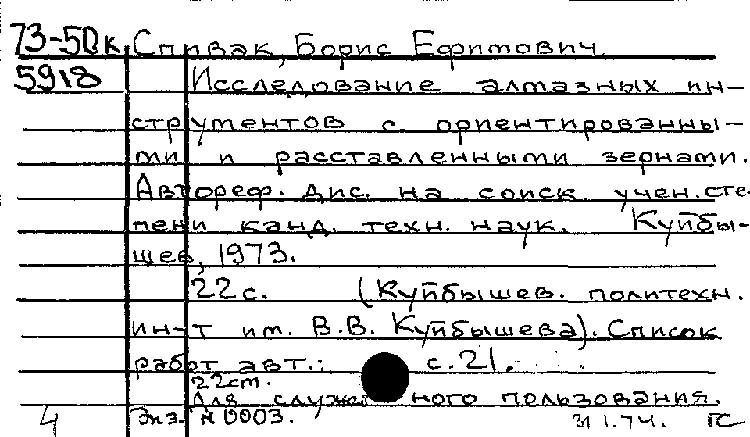 73-50к Спивак, Борис Ефимович
5918 Исследование алмазных ин-
струментов с ориентированны-
ми и расставленными зернами.
Автореф. дис. на соиск учен. сте-
пени канд. техн. наук. Куйбы-
шев, 1973.
22 с. (Куйбышев. политехн.
ин-т им. В.В. Куйбышева). Список
работ авт.: с. 21.
22 см.
Для служебного пользования.
4 Экз. N 0003. 31.1.74. ГС